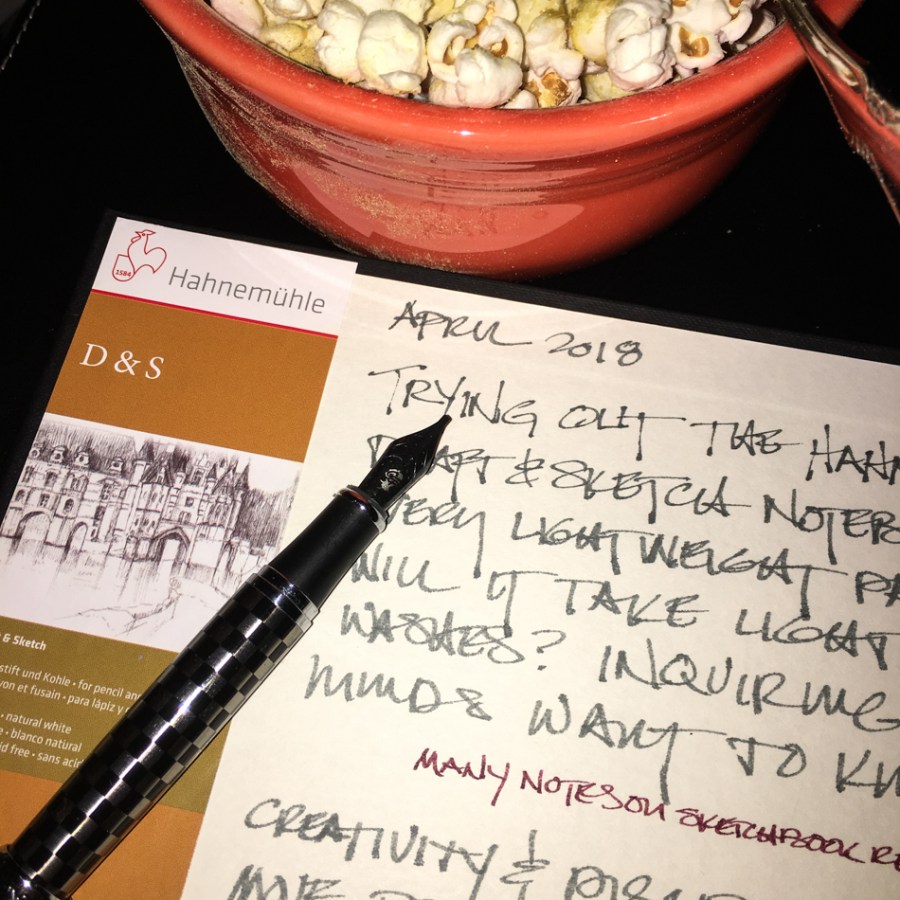 1584
Hahnemühle
D & S
& Sketch
stift und Kohle • for pencil and
yon et fusain • para lápiz y
• natural white
e • blanco natural
id free • sans acid
APRIL 2018
TRYING OUT THE HAHN
DRAFT & SKETCH NOTEB
VERY LIGHTWEIGHT PA
WILL IT TAKE LIGHT
WASHES? INQUIRING
MINDS WANT TO KN
MANY NOTES ON SKETCHBOOK RE
CREATIVITY &